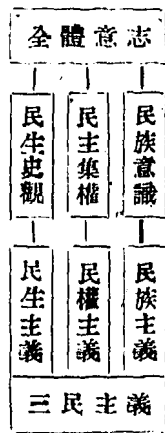 全體意志
民族意識
民主集權
民生史觀
民族主義
民權主義
民生主義
三民主義